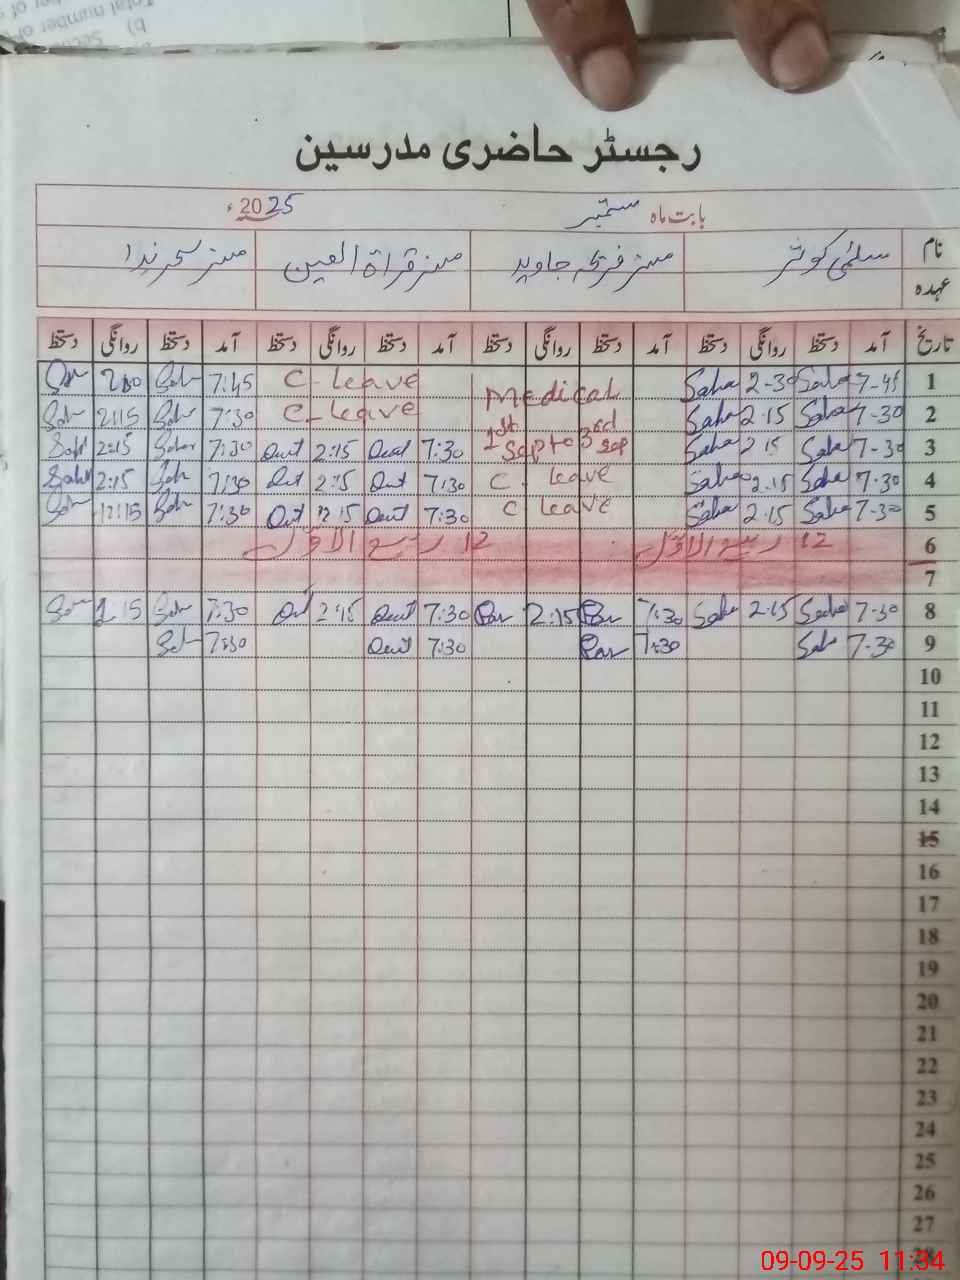 رجسٹر حاضری مدرسین
بابت ماہ ستمبر 2025ء
نام سلمیٰ کوثر مسز فرح جاوید مسز قراۃ العین مسز سحر ندا
عہدہ
تاریخ آمد دستخط روانگی دستخط آمد دستخط روانگی دستخط آمد دستخط روانگی دستخط آمد دستخط روانگی دستخط
1 7-45 Saha 2-30 Saha Medical C-Leave 7:45 Sah 2:30
2 7-30 Saha 2.15 Saha 1st C-Leave 7:30 Sah 2:15 Sah
3 7-30 Saha 2.15 Saha Sep to 3rd Sep 7:30 Qurat 2:15 Qurat 7:30 Sahar 2:15 Sah
4 7.30 Saha 2.15 Saha C. Leave 7:30 Qut 2:15 Qut 7:30 Sah 2:15 Sahar
5 7-30 Saha 2.15 Saha C Leave 7:30 Qurat 12:15 Qut 7:30 Sah 12:15 Sah
6 12 ربیع الاوّل 12 ربیع الاوّل
7
8 7-30 Saha 2.15 Saha 7:30 Par 2:15 Par 7:30 Qurat 2:15 Qut 7:30 Sah 2:15 Sah
9 7-30 Sah 7:30 Par 7:30 Qurat 7:30 Sah
10
11
12
13
14
15
16
17
18
19
20
21
22
23
24
25
26
27
28
09-09-25 11:34